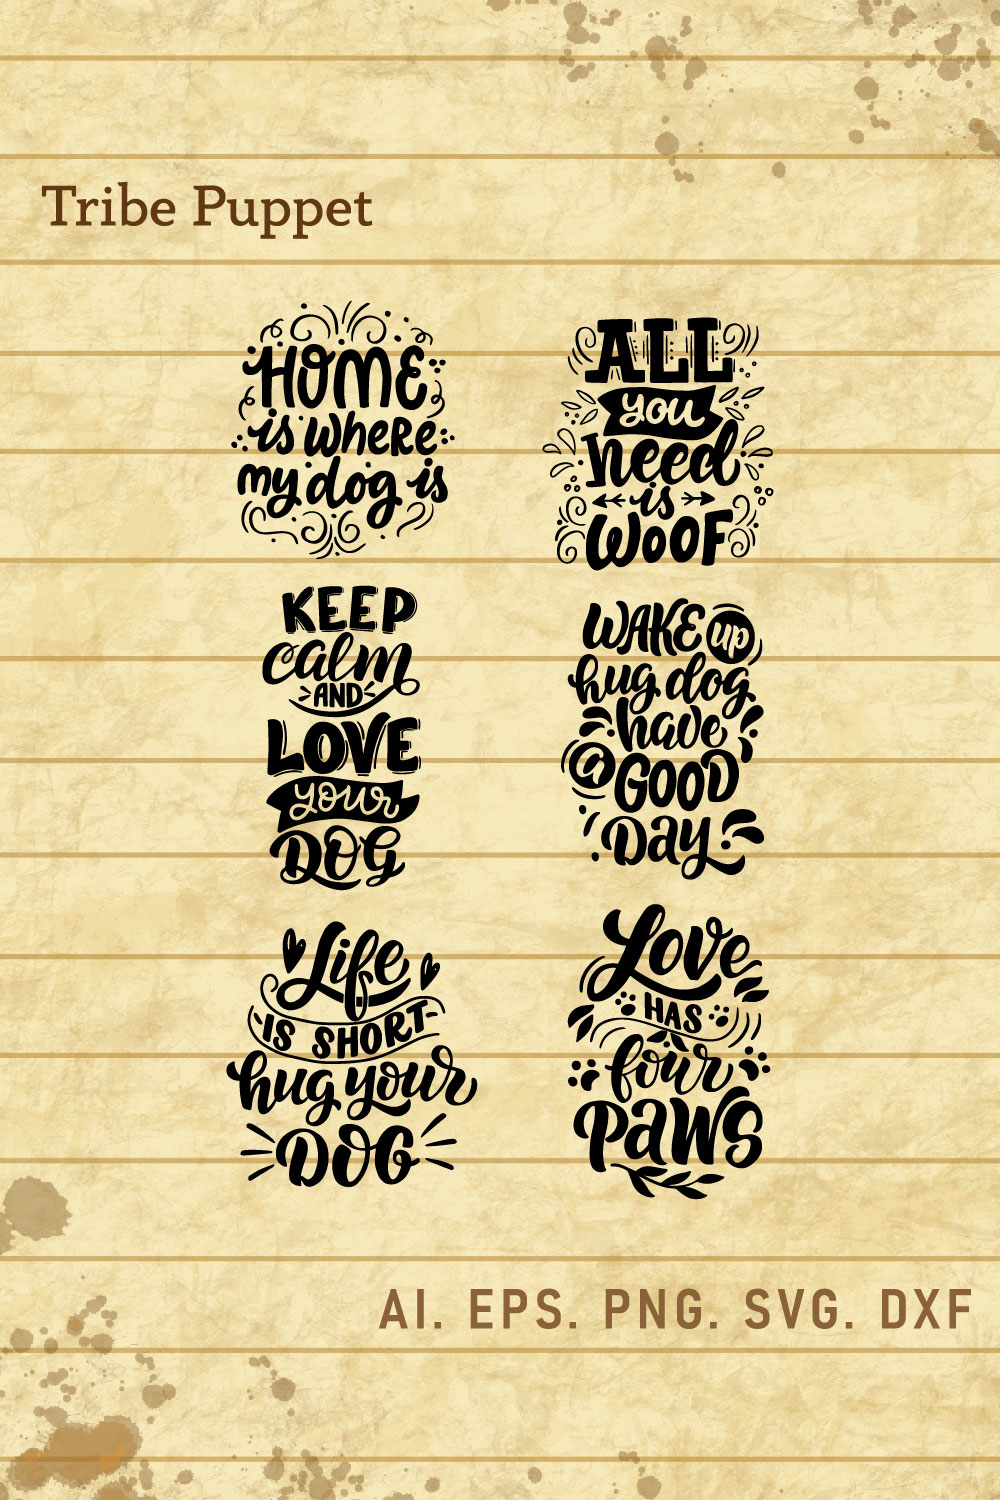 Tribe Puppet
HOME
is where
my dog is
ALL
you
need
is
WOOF
KEEP
calm
AND
LOVE
your
DOG
WAKE up
hug dog
have
a GOOD
Day
Life
IS SHORT
hug your
DOG
Love
HAS
four
PAWS
AI. EPS. PNG. SVG. DXF